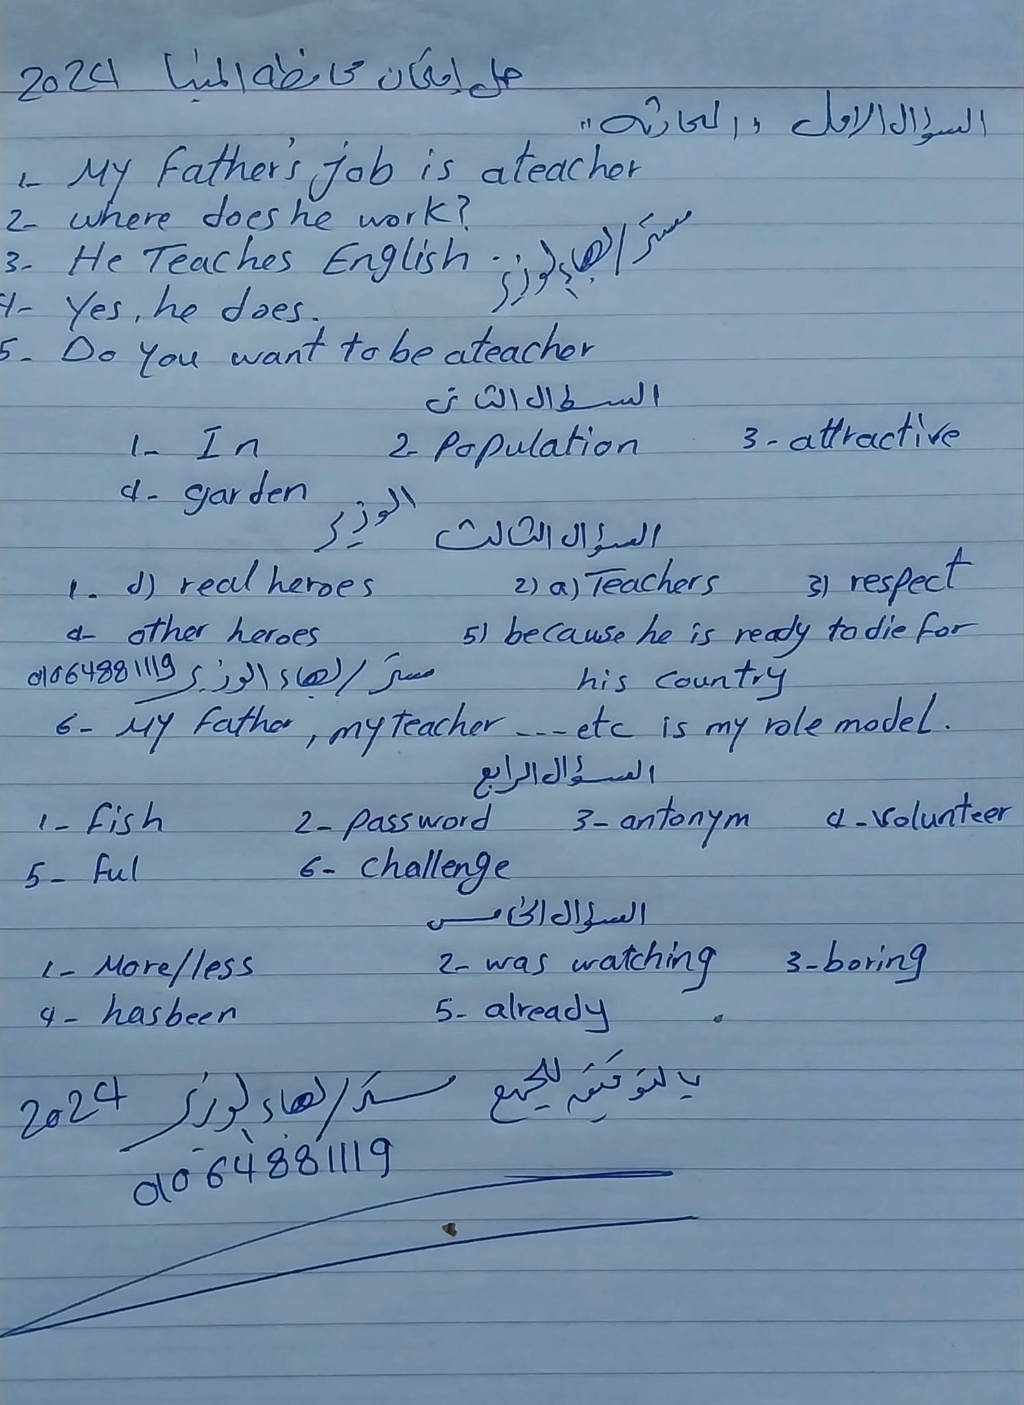 حل إمتحان محافظة المنيا 2024
السؤال الاول "المحادثه"
1- My Father's job is ateacher
2- where does he work?
3- He Teaches English. مستر/ إيهاب الوزير
4- Yes, he does.
5- Do you want to be ateacher
السؤال الثانى
1- In 2- Population 3- attractive
4- garden
الوزير
السؤال الثالث
1. d) real heroes 2) a) Teachers 3) respect
4- other heroes 5) because he is ready to die for
his country
مستر/ إيهاب الوزير 01064881119
6- My Father, my teacher ---etc is my role model.
السؤال الرابع
1- fish 2- password 3- antonym 4- volunteer
5- ful 6- challenge
السؤال الخامس
1- More/less 2- was watching 3- boring
4- has been 5- already
بالتوفيق للجميع مستر/ إيهاب الوزير 2024
01064881119